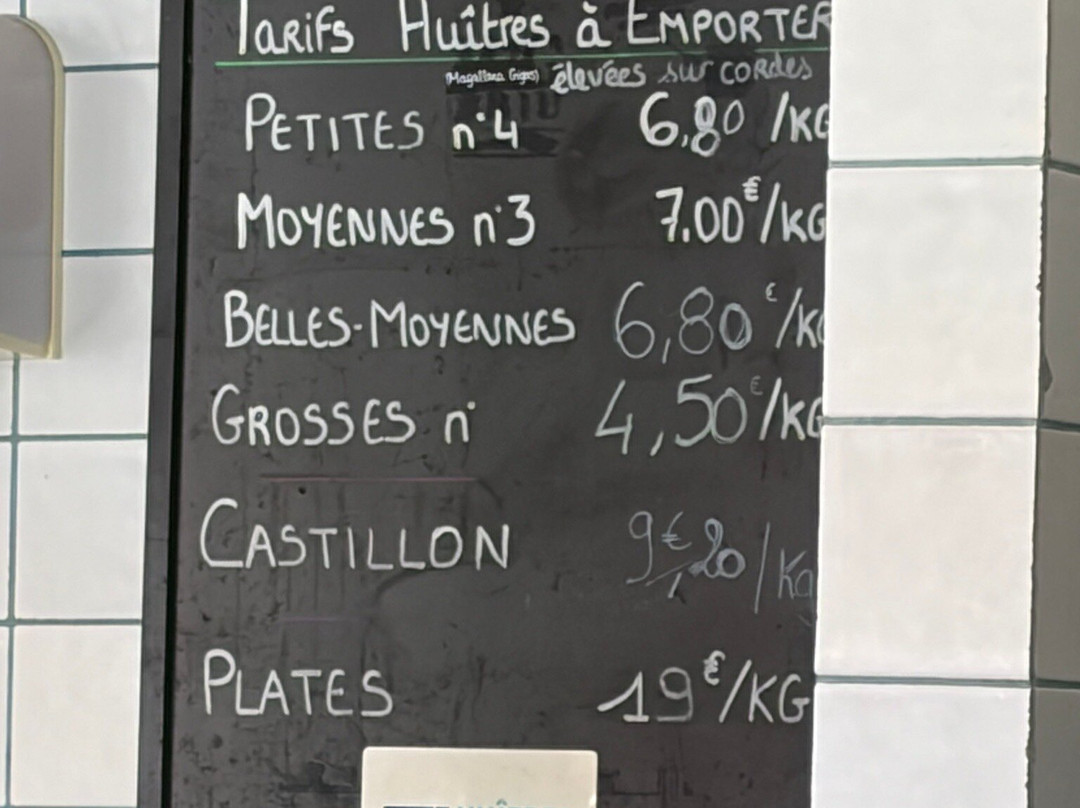 Tarifs Huîtres à EMPORTER
(Magallana Gigas) élevées sur cordes
PETITES n°4 6,80 /KG
MOYENNES n°3 7.00€/KG
BELLES-MOYENNES 6,80€/KG
GROSSES n° 4,50€/KG
CASTILLON 9€20/Kg
PLATES 19€/KG